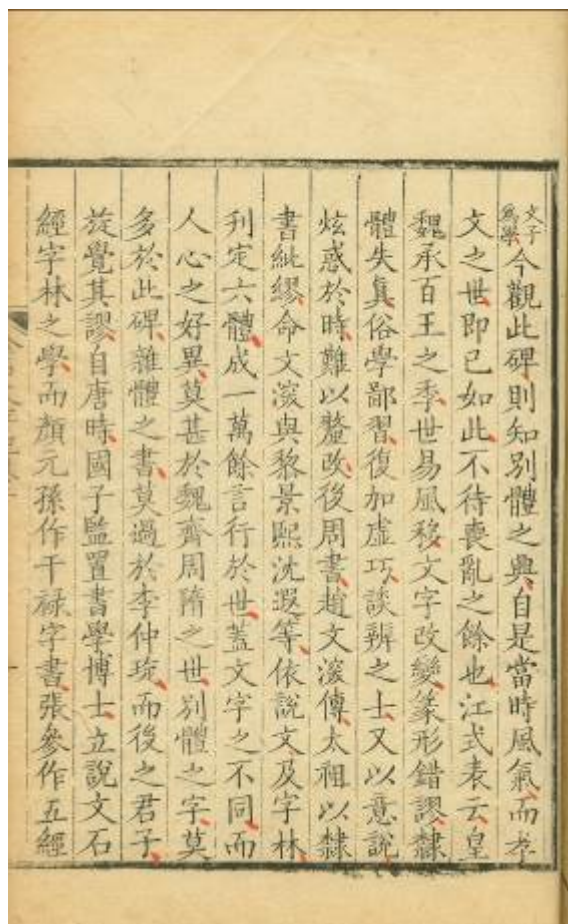 文子為學今觀此碑則知別體之興自是當時風氣而孝
文之世即已如此不待喪亂之餘也江式表云皇
魏承百王之季世易風移文字改變篆形錯謬隸
體失真俗學鄙習復加虛巧談辨之士又以意說
炫惑於時難以釐改後周書趙文深傳太祖以隸
書紕繆命文深與黎景熙沈遐等依說文及字林
刊定六體成一萬餘言行於世蓋文字之不同而
人心之好異莫甚於魏齊周隋之世別體之字莫
多於此碑雜體之書莫過於李仲琁而後之君子
旋覺其謬自唐時國子監置書學博士立說文石
經字林之學而顏元孫作干祿字書張參作五經